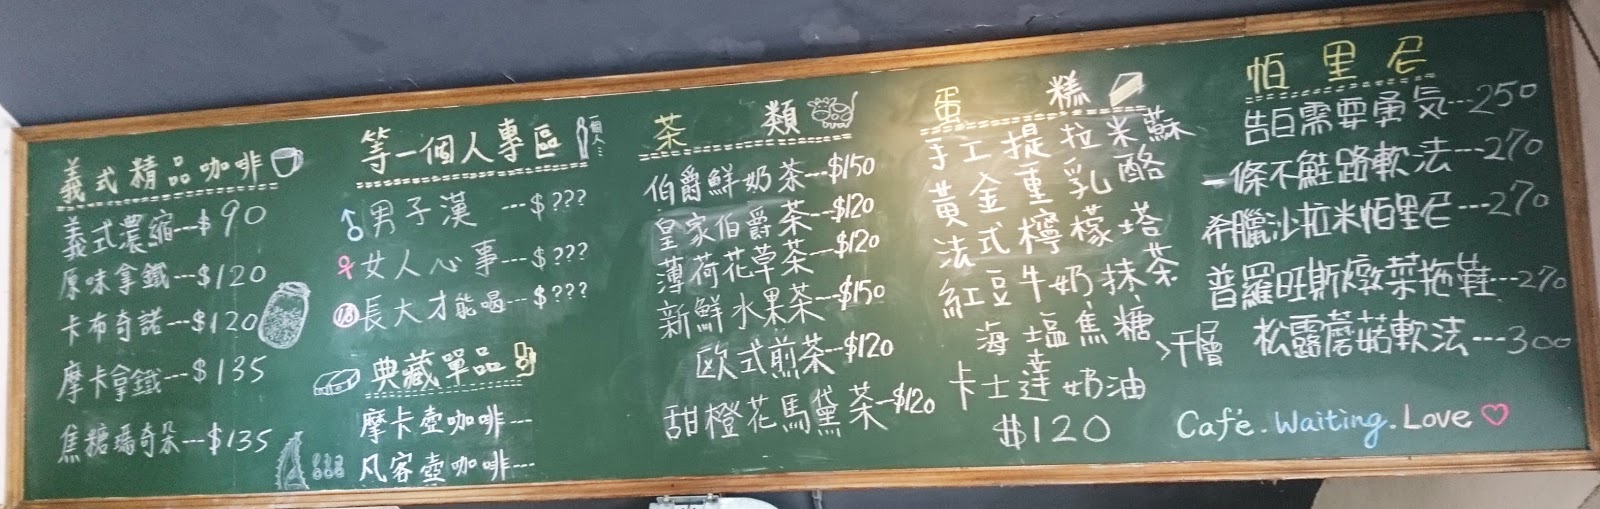 義式精品咖啡
義式濃縮---$90
原味拿鐵---$120
卡布奇諾---$120
摩卡拿鐵---$135
焦糖瑪奇朵---$135
等一個人專區
一個人...
男子漢 ---$???
女人心事---$???
18長大才能喝---$???
典藏單品
摩卡壺咖啡---
凡客壺咖啡---
茶類
伯爵鮮奶茶---$150
皇家伯爵茶---$120
薄荷花草茶---$120
新鮮水果茶---$150
歐式煎茶---$120
甜橙花馬黛茶---$120
蛋糕
手工提拉米蘇
黃金重乳酪
法式檸檬塔
紅豆牛奶抹茶
海塩焦糖
>千層
卡士達奶油
$120
帕里尼
告白需要勇氣---250
一條不鮭路軟法---270
希臘沙拉米帕里尼---270
普羅旺斯燉菜拖鞋---270
松露蘑菇軟法---300
Café.Waiting.Love♡